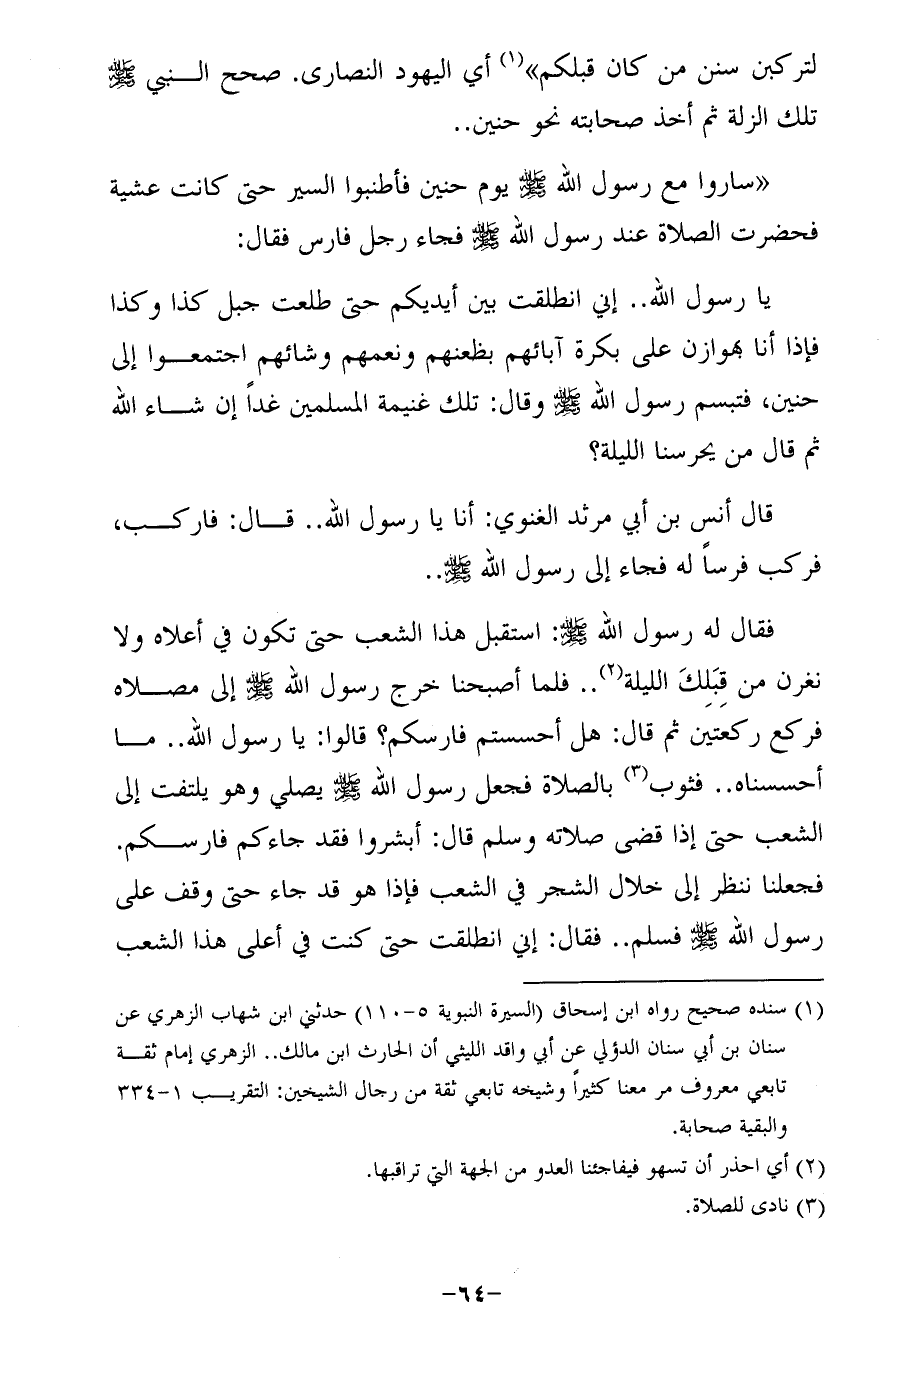 لتركبن سنن من كان قبلكم»(١) أي اليهود النصارى. صحح النبي ﷺ
تلك الزلة ثم أخذ صحابته نحو حنين..
«ساروا مع رسول الله ﷺ يوم حنين فأطنبوا السير حتى كانت عشية
فحضرت الصلاة عند رسول الله ﷺ فجاء رجل فارس فقال:
يا رسول الله.. إني انطلقت بين أيديكم حتى طلعت جبل كذا وكذا
فإذا أنا بهوازن على بكرة آبائهم بظعنهم ونعمهم وشائهم اجتمعوا إلى
حنين، فتبسم رسول الله ﷺ وقال: تلك غنيمة المسلمين غداً إن شاء الله
ثم قال من يحرسنا الليلة؟
قال أنس بن أبي مرثد الغنوي: أنا يا رسول الله.. قال: فاركب،
فركب فرساً له فجاء إلى رسول الله ﷺ..
فقال له رسول الله ﷺ: استقبل هذا الشعب حتى تكون في أعلاه ولا
نغرن من قِبَلِكَ الليلة(٢).. فلما أصبحنا خرج رسول الله ﷺ إلى مصلاه
فركع ركعتين ثم قال: هل أحسستم فارسكم؟ قالوا: يا رسول الله.. ما
أحسسناه.. فثوب(٣) بالصلاة فجعل رسول الله ﷺ يصلي وهو يلتفت إلى
الشعب حتى إذا قضى صلاته وسلم قال: أبشروا فقد جاءكم فارسكم.
فجعلنا ننظر إلى خلال الشجر في الشعب فإذا هو قد جاء حتى وقف على
رسول الله ﷺ فسلم.. فقال: إني انطلقت حتى كنت في أعلى هذا الشعب
(١) سنده صحيح رواه ابن إسحاق (السيرة النبوية ٥-١١٠) حدثني ابن شهاب الزهري عن
سنان بن أبي سنان الدؤلي عن أبي واقد الليثي أن الحارث ابن مالك.. الزهري إمام ثقة
تابعي معروف مر معنا كثيراً وشيخه تابعي ثقة من رجال الشيخين: التقريب ١-٣٣٤
والبقية صحابة.
(٢) أي احذر أن تسهو فيفاجئنا العدو من الجهة التي تراقبها.
(٣) نادى للصلاة.
-٦٤-